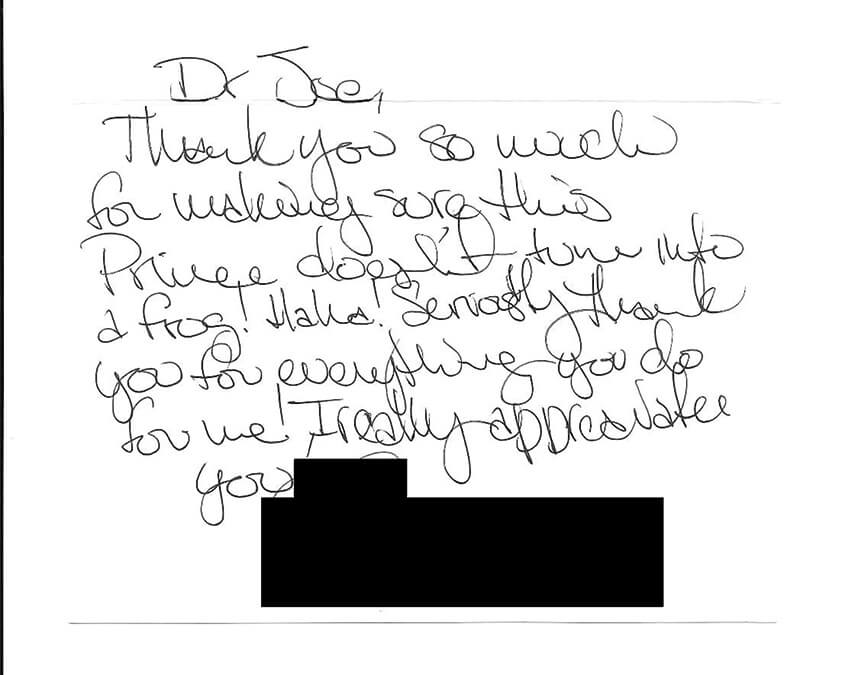 Dr Joe,
Thank you so much
for making sure this
Prince doesn't turn into
a frog! Haha! Seriously thank
you for everything you do
for me! I really appreciate
you